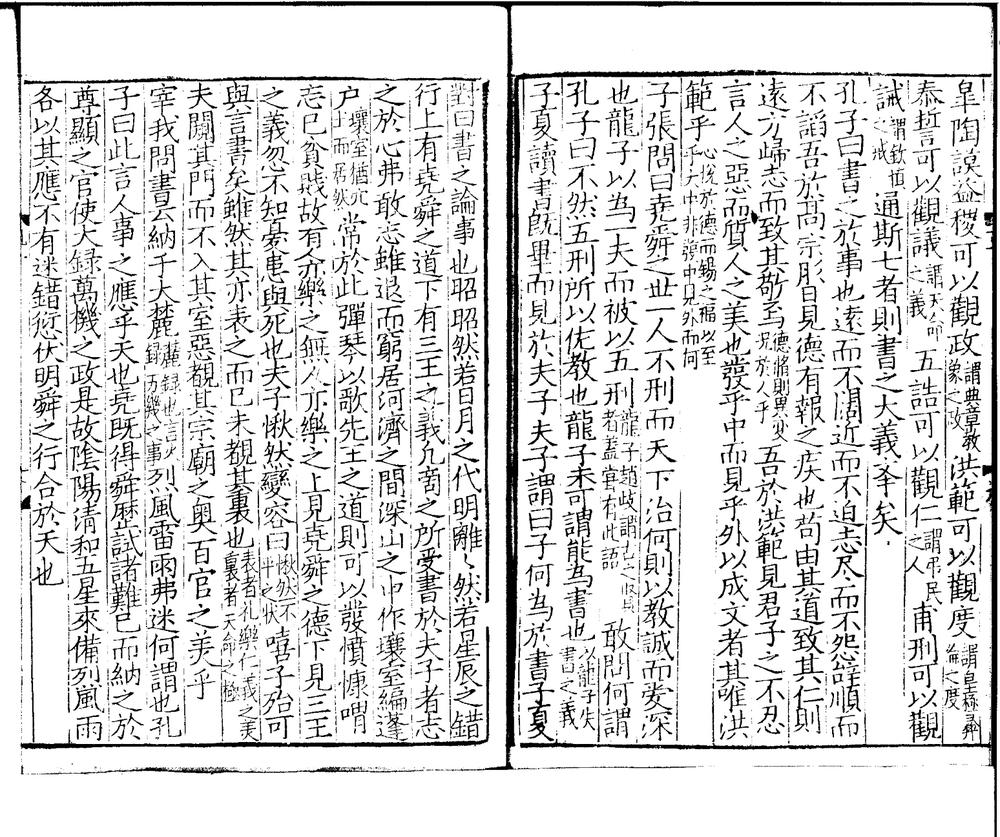 皐陶謨益稷可以觀政謂典章教象之政洪範可以觀度謂皇極彛倫之度
泰誓可以觀議謂天命之義五誥可以觀仁謂弔民之人甫刑可以觀
誡謂欽恤之戒通斯七者則書之大義李矣
孔子曰書之於事也遠而不闊近而不迫志尽而不怨辝順而
不謟吾於高宗肜日見德有報之疾也苟由其道致其仁則
遠方歸志而致其敬焉吾於洪範見君子之不忍
言人之惡而質人之美也發乎中而見乎外以成文者其唯洪
範乎
子張問曰堯舜之世一人不刑而天下治何則以教誠而爱深
也龍子以為一夫而被以五刑敢問何謂
孔子曰不然五刑所以佐教也龍子未可謂能為書也以龍子失書之義
子夏讀書旣畢而見於夫子夫子謂曰子何為於書子夏
對曰書之論事也昭昭然若日月之代明離〻然若星辰之錯
行上有堯舜之道下有三王之義凢啇之所受書於夫子者志
之於心弗敢忘雖退而窮居河濟之間深山之中作壤室編蓬
户常於此彈琴以歌先王之道則可以發憤慷喟
忘己貧賎故有人亦樂之無人亦樂之上見堯舜之德下見三王
之義忽不知憂患與死也夫子愀然變容曰愀然不平之狀嘻子殆可
與言書矣雖然其亦表之而已未覩其裏也表者礼樂仁義之美裏者天命之極
夫闚其門而不入其室惡觀其宗廟之奥百官之美乎
宰我問書云納于大麓烈風雷雨弗迷何謂也孔
子曰此言人事之應乎天也堯既得舜歷試諸難已而納之於
尊顯之官使大録萬機之政是故隂陽清和五星來備列風雨
各以其應不有迷錯愆伏明舜之行合於天也